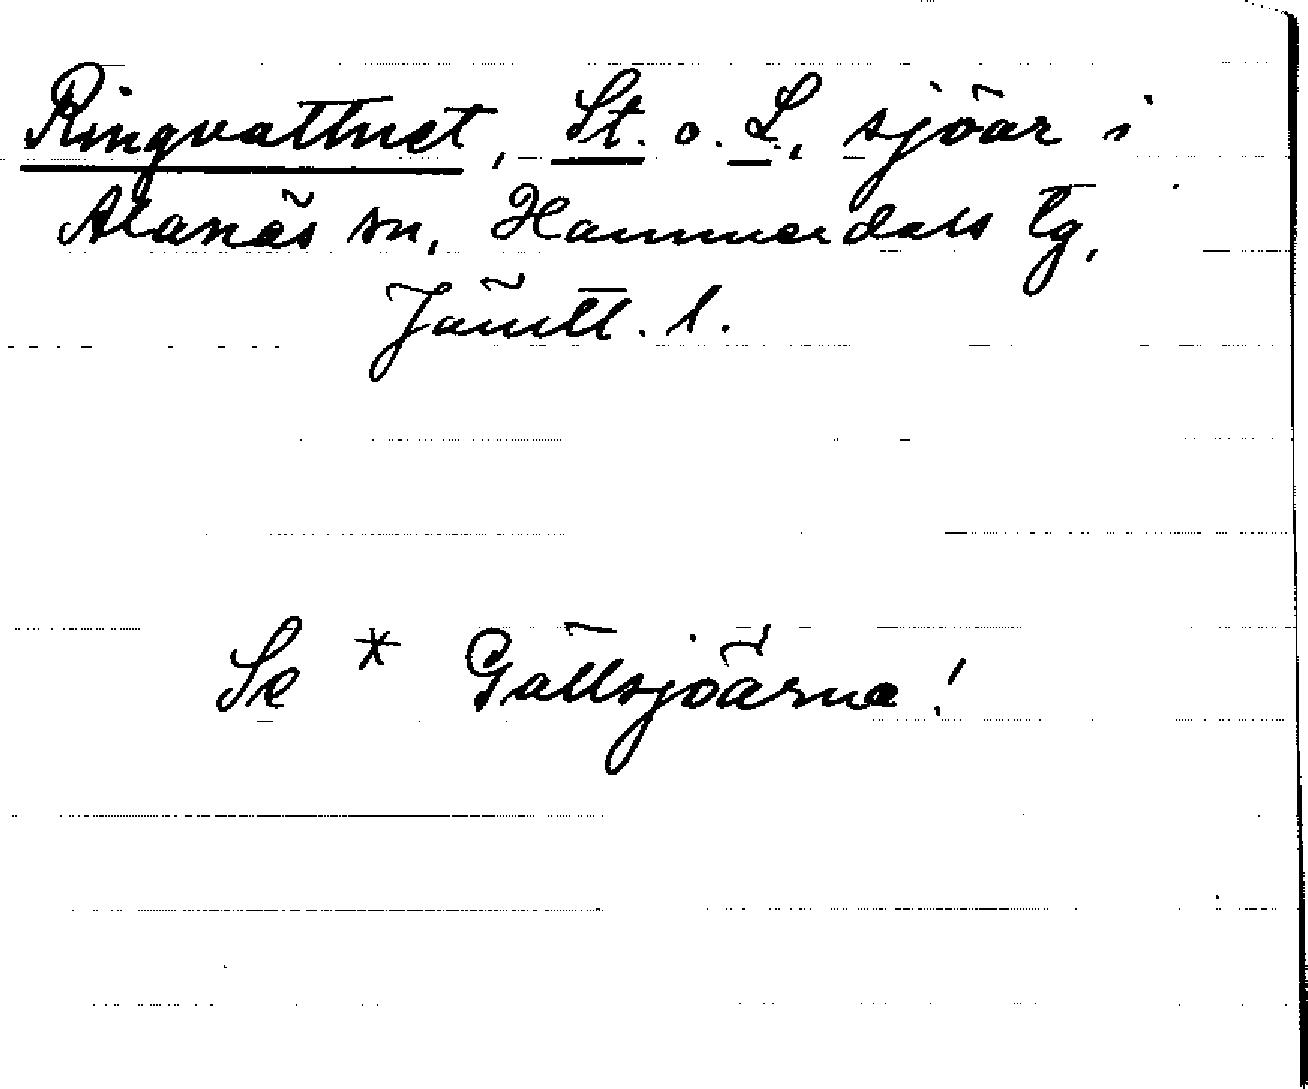 Ringvattnet, St. o. L. sjöar i
Alanäs sn, Hammerdals tg,
Jämtl. l.
Se * Gällsjöarna!